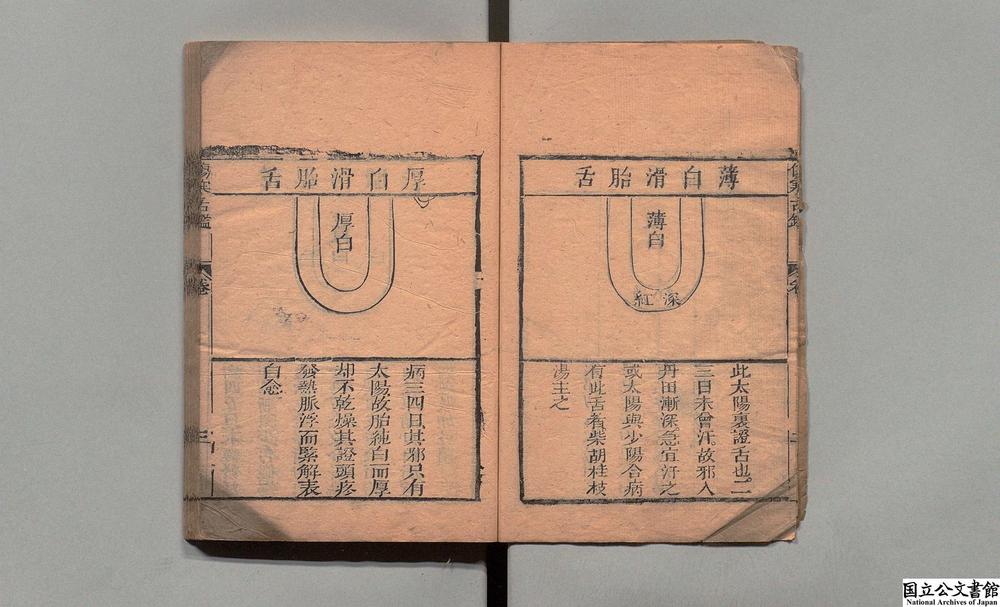 薄白滑胎舌
薄白
深紅
此太陽裏證舌也。二
三日未曾汗。故邪入
丹田漸深急宜汗之
或太陽與少陽合病
有此舌者柴胡桂枝
湯主之
傷寒舌鑑
卷
厚白滑胎舌
厚白
病三四日其邪只有
太陽故胎純白而厚
却不乾燥其證頭疼
發熱脈浮而緊解表
自愈
国立公文書館
National Archives of Japan